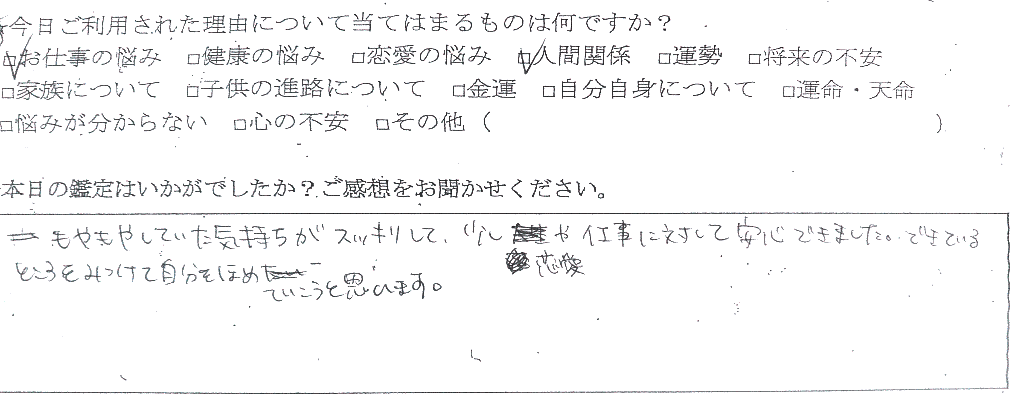 今日ご利用された理由について当てはまるものは何ですか？
□お仕事の悩み □健康の悩み □恋愛の悩み □人間関係 □運勢 □将来の不安
□家族について □子供の進路について □金運 □自分自身について □運命・天命
□悩みが分からない □心の不安 □その他（ ）
本日の鑑定はいかがでしたか？ご感想をお聞かせください。
もやもやしていた気持ちがスッキリして、少し 恋愛や仕事に対して安心できました。できている
ところをみつけて自分をほめ
ていこうと思います。